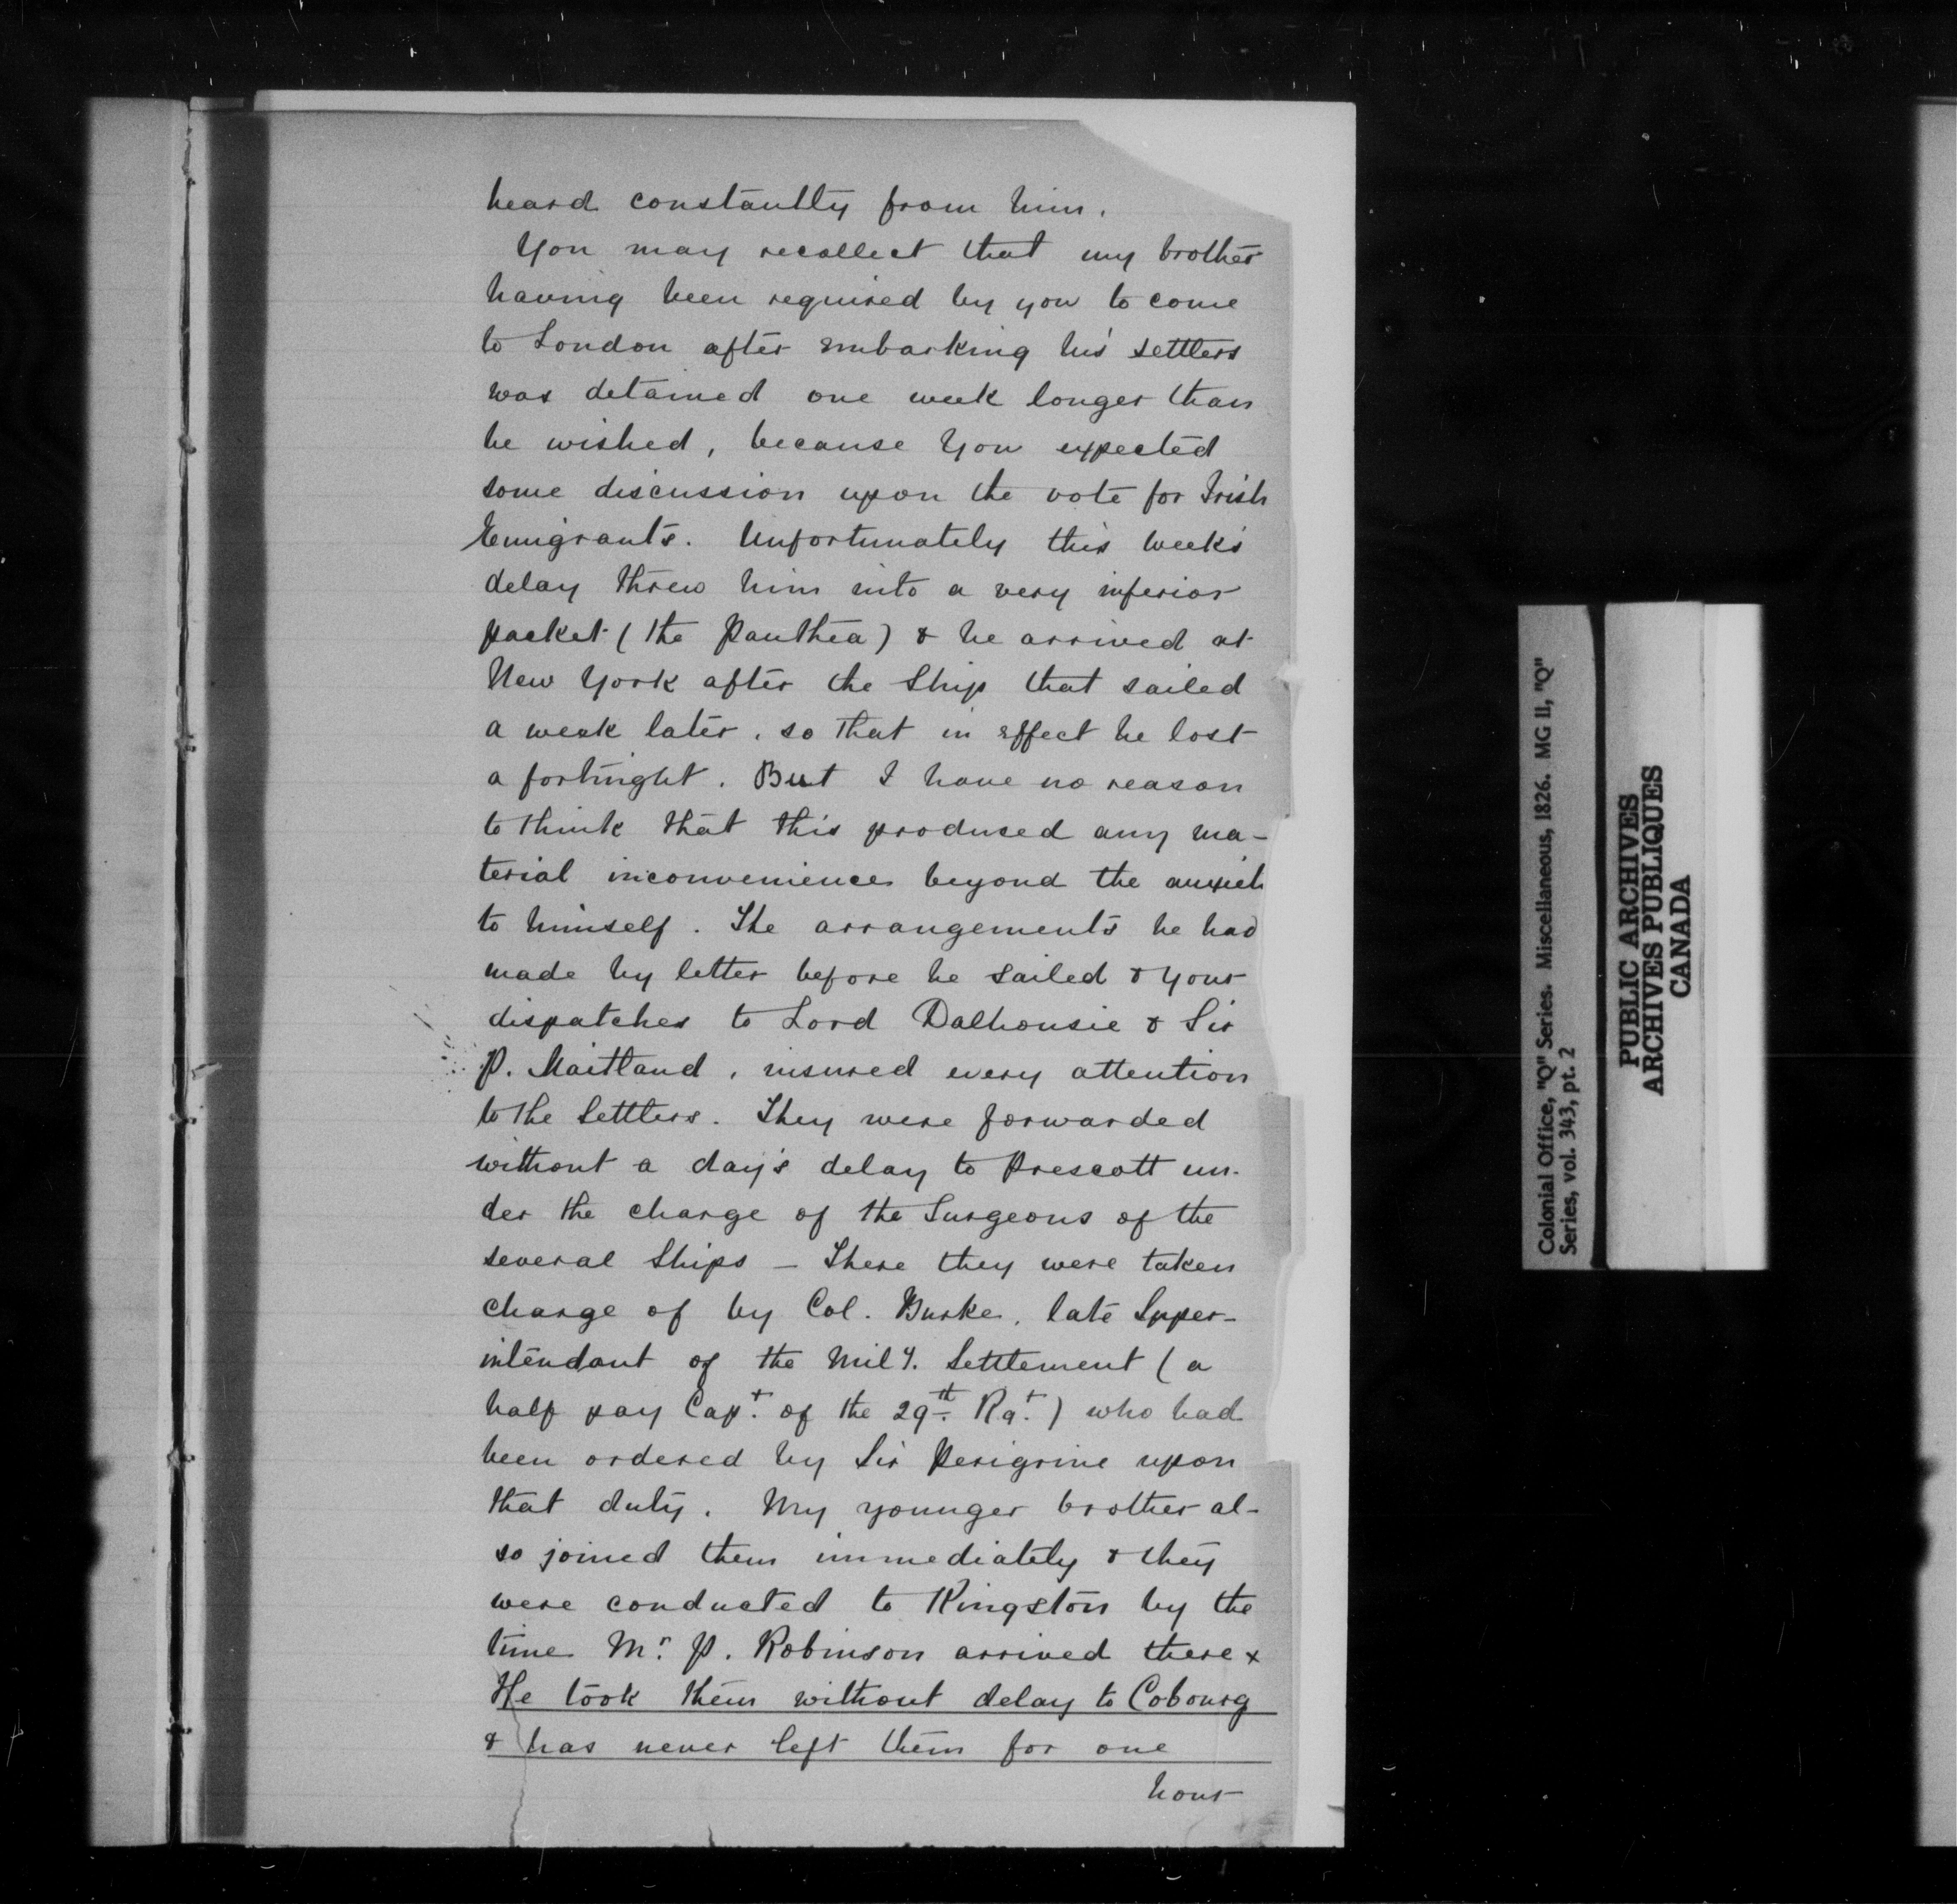 heard constantly from him.
You may recollect that my brother
having been required by you to come
to London after embarking his settlers
was detained one week longer than
he wished, because you expected
some discussion upon the vote for Irish
Emigrants. Unfortunately this weeks
delay threw him into a very inferior
packet (the Panthea) & he arrived at
New York after the Ship that sailed
a week later, so that in effect he lost
a fortnight. But I have no reason
to think that this produced any ma-
terial inconvenience beyond the
to himself. The arrangements he had
made by letter before he sailed & your
dispatches to Lord Dalhousie & Sir
P. Maitland, insured every attention
to the Settlers. They were forwarded
without a day's delay to Prescott un-
der the charge of the Surgeons of the
several Ships — There they were taken
charge of by Col. Burke, late Super-
intendant of the Mil y. Settlement (a
half pay Capt. of the 29th. Rgt.) who had
been ordered by Sir Perigrine upon
that duty. My younger brother al-
so joined them immediately & they
were conducted to Kingston by the
time Mr. P. Robinson arrived there &
He took them without delay to Cobourg
& has never left them for one
hour
Colonial Office, "Q" Series. Miscellaneous, 1826. MG 11, "Q"
Series, vol. 343, pt. 2
PUBLIC ARCHIVES
ARCHIVES PUBLIQUES
CANADA